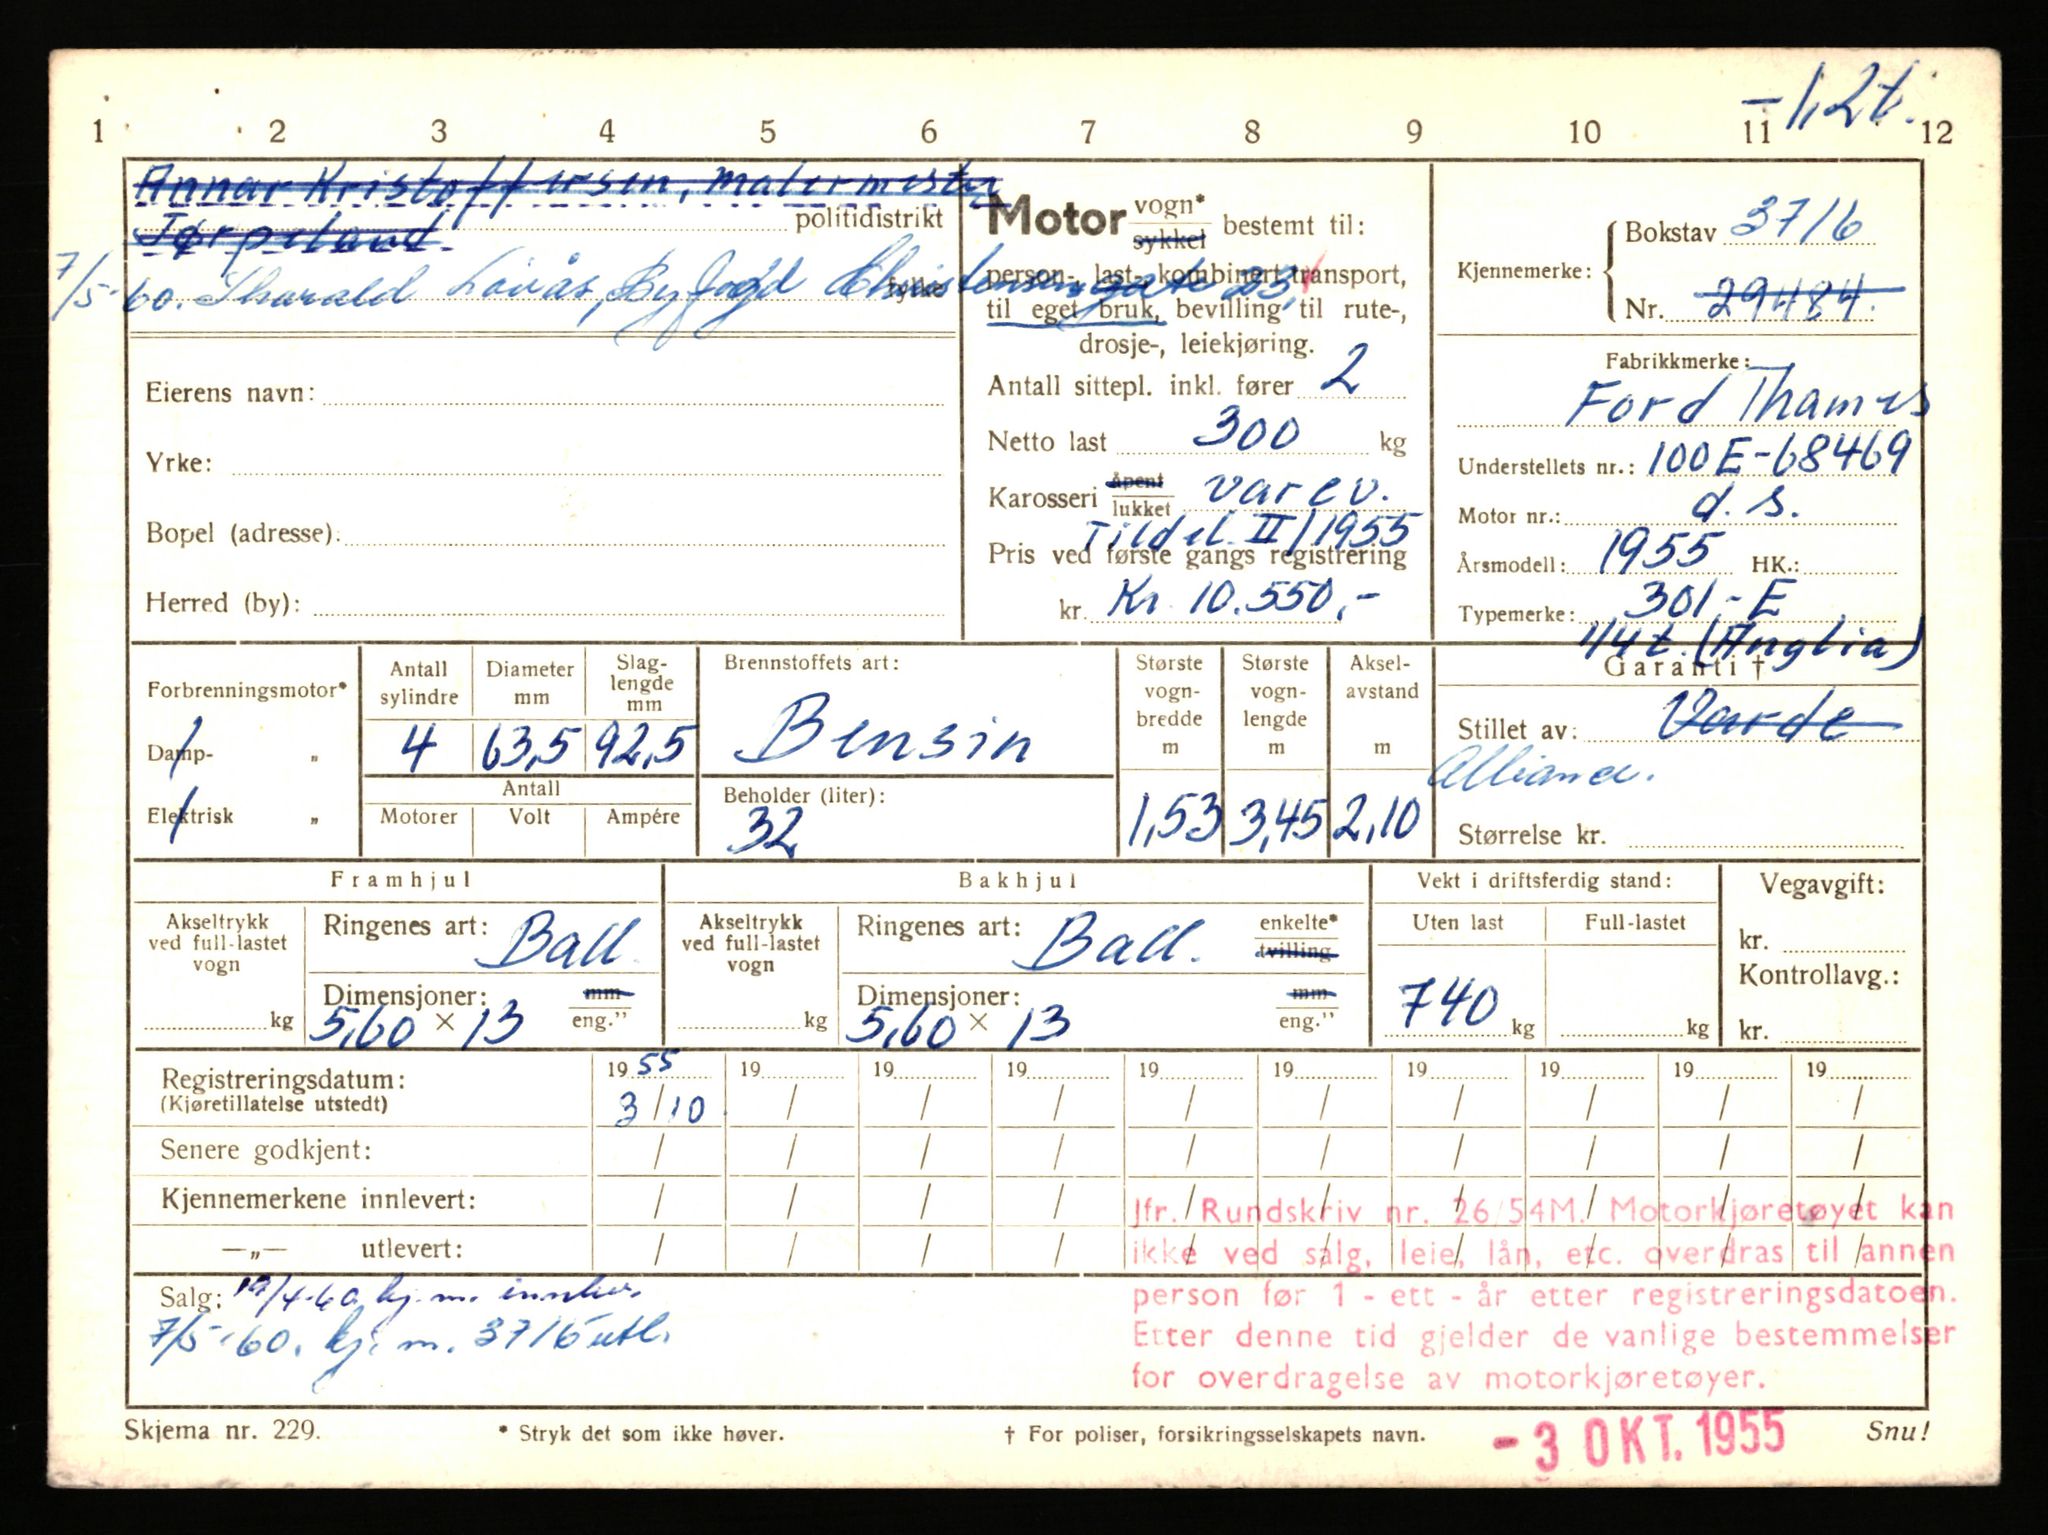 -1,2t.
1 2 3 4 5 6 7 8 9 10 11 12
Annar Kristoffersen, malermester
Jørpeland politidistrikt
7/5-60. Thorald Løvås, Byfogd Christensens gate 23, fylke
Eierens navn:
Yrke:
Bopel (adresse):
Herred (by):
Motor vogn* sykkel bestemt til:
person-, last-, kombinert transport,
til eget bruk, bevilling til rute-,
drosje-, leiekjøring.
Antall sittepl. inkl. fører 2
Netto last 300 kg
Karosseri åpent lukket varev.
Tildel. II/1955
Pris ved første gangs registrering
kr. Kr. 10.550,-
Kjennemerke: Bokstav 3716
Nr. 29484.
Fabrikkmerke:
Ford Thames
Understellets nr.: 100E-68469
Motor nr.: d.s.
Årsmodell: 1955 HK.:
Typemerke: 301-E
1/4t. (Anglia)
Forbrenningsmotor*
Damp- „
Elektrisk „
Antall sylindre 4
Diameter mm 63,5
Slag-lengde mm 92,5
Antall
Motorer Volt Ampére
Brennstoffets art:
Bensin
Beholder (liter):
32
Største vogn-bredde m 1,53
Største vogn-lengde m 3,45
Aksel-avstand m 2,10
Garanti †
Stillet av: Varde
Alliance.
Størrelse kr.
Framhjul
Akseltrykk ved full-lastet vogn kg
Ringenes art: Ball.
Dimensjoner: mm eng."
5,60 × 13
Bakhjul
Akseltrykk ved full-lastet vogn kg
Ringenes art: Ball. enkelte* tvilling
Dimensjoner: mm eng."
5,60 × 13
Vekt i driftsferdig stand:
Uten last Full-lastet
740 kg kg
Vegavgift:
kr.
Kontrollavg.:
kr.
Registreringsdatum: 1955 19 19 19 19 19 19 19 19 19
(Kjøretillatelse utstedt) 3/10 / / / / / / / / /
Senere godkjent: / / / / / / / / / /
Kjennemerkene innlevert: / / / / / / / / / /
—„— utlevert: / / / / / / / / / /
Salg: 19/4-60 kj.m. innlev.
7/5-60. kj.m. 3716 utl.
Jfr. Rundskriv nr. 26/54M. Motorkjøretøyet kan
ikke ved salg, leie, lån, etc. overdras til annen
person før 1 - ett - år etter registreringsdatoen.
Etter denne tid gjelder de vanlige bestemmelser
for overdragelse av motorkjøretøyer.
Skjema nr. 229. * Stryk det som ikke høver. † For poliser, forsikringsselskapets navn. Snu!
-3 OKT. 1955